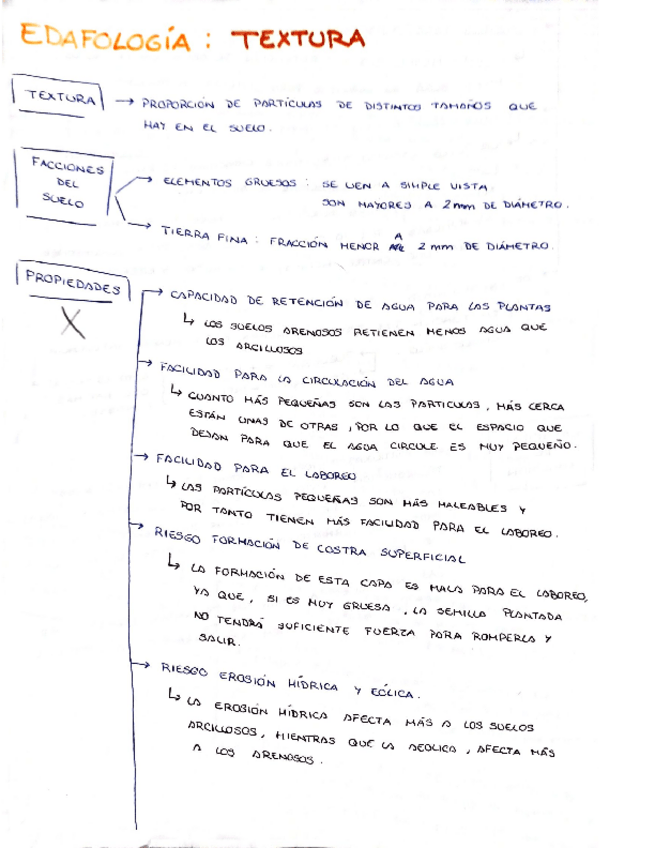 EDAFOLOGÍA : TEXTURA
TEXTURA → PROPORCIÓN DE PARTÍCULAS DE DISTINTOS TAMAÑOS QUE
HAY EN EL SUELO.
FACCIONES
DEL
SUELO
→ ELEMENTOS GRUESOS : SE VEN A SIMPLE VISTA
SON MAYORES A 2 mm DE DIÁMETRO.
→ TIERRA FINA : FRACCIÓN MENOR A 2 mm DE DIÁMETRO.
PROPIEDADES
→ CAPACIDAD DE RETENCIÓN DE AGUA PARA LAS PLANTAS
↳ LOS SUELOS ARENOSOS RETIENEN MENOS AGUA QUE
LOS ARCILLOSOS
→ FACILIDAD PARA LA CIRCULACIÓN DEL AGUA
↳ CUANTO MÁS PEQUEÑAS SON LAS PARTICULAS, MÁS CERCA
ESTÁN UNAS DE OTRAS, POR LO QUE EL ESPACIO QUE
DEJAN PARA QUE EL AGUA CIRCULE ES MUY PEQUEÑO.
→ FACILIDAD PARA EL LABOREO
↳ LAS PARTÍCULAS PEQUEÑAS SON MÁS MALEABLES Y
POR TANTO TIENEN MÁS FACILIDAD PARA EL LABOREO.
→ RIESGO FORMACIÓN DE COSTRA SUPERFICIAL
↳ LA FORMACIÓN DE ESTA CAPA ES MALA PARA EL LABOREO,
YA QUE, SI ES MUY GRUESA, LA SEMILLA PLANTADA
NO TENDRÁ SUFICIENTE FUERZA PARA ROMPERLA Y
SALIR.
→ RIESGO EROSIÓN HÍDRICA Y EÓLICA.
↳ LA EROSIÓN HÍDRICA AFECTA MÁS A LOS SUELOS
ARCILLOSOS, MIENTRAS QUE LA AEOLICA, AFECTA MÁS
A LOS ARENOSOS.